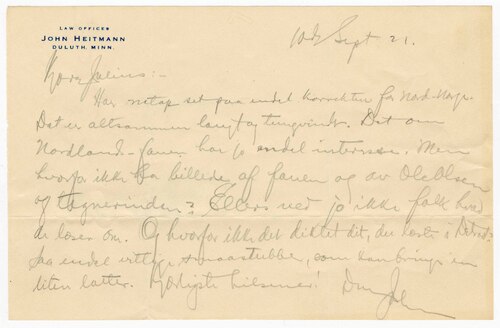 LAW OFFICES
JOHN HEITMANN
DULUTH, MINN.
Sept 21.
Kære Julius:-
Har netop set paa endel korrektur for Nord-Norge.
Det er altsammen langt og tungvindt. Det om
Nordlands-fanen har jo endel interesse. Men
hvorfor ikke billede af fanen og av Ole Olsen
og tegnerinden? Ellers ved jo ikke folk hvad
de læser om. Og hvorfor ikke det digtet dit, du læste i
Faa endel maastubber, som kan bringe en
liten latter. Hjertligste hilsener! Din John